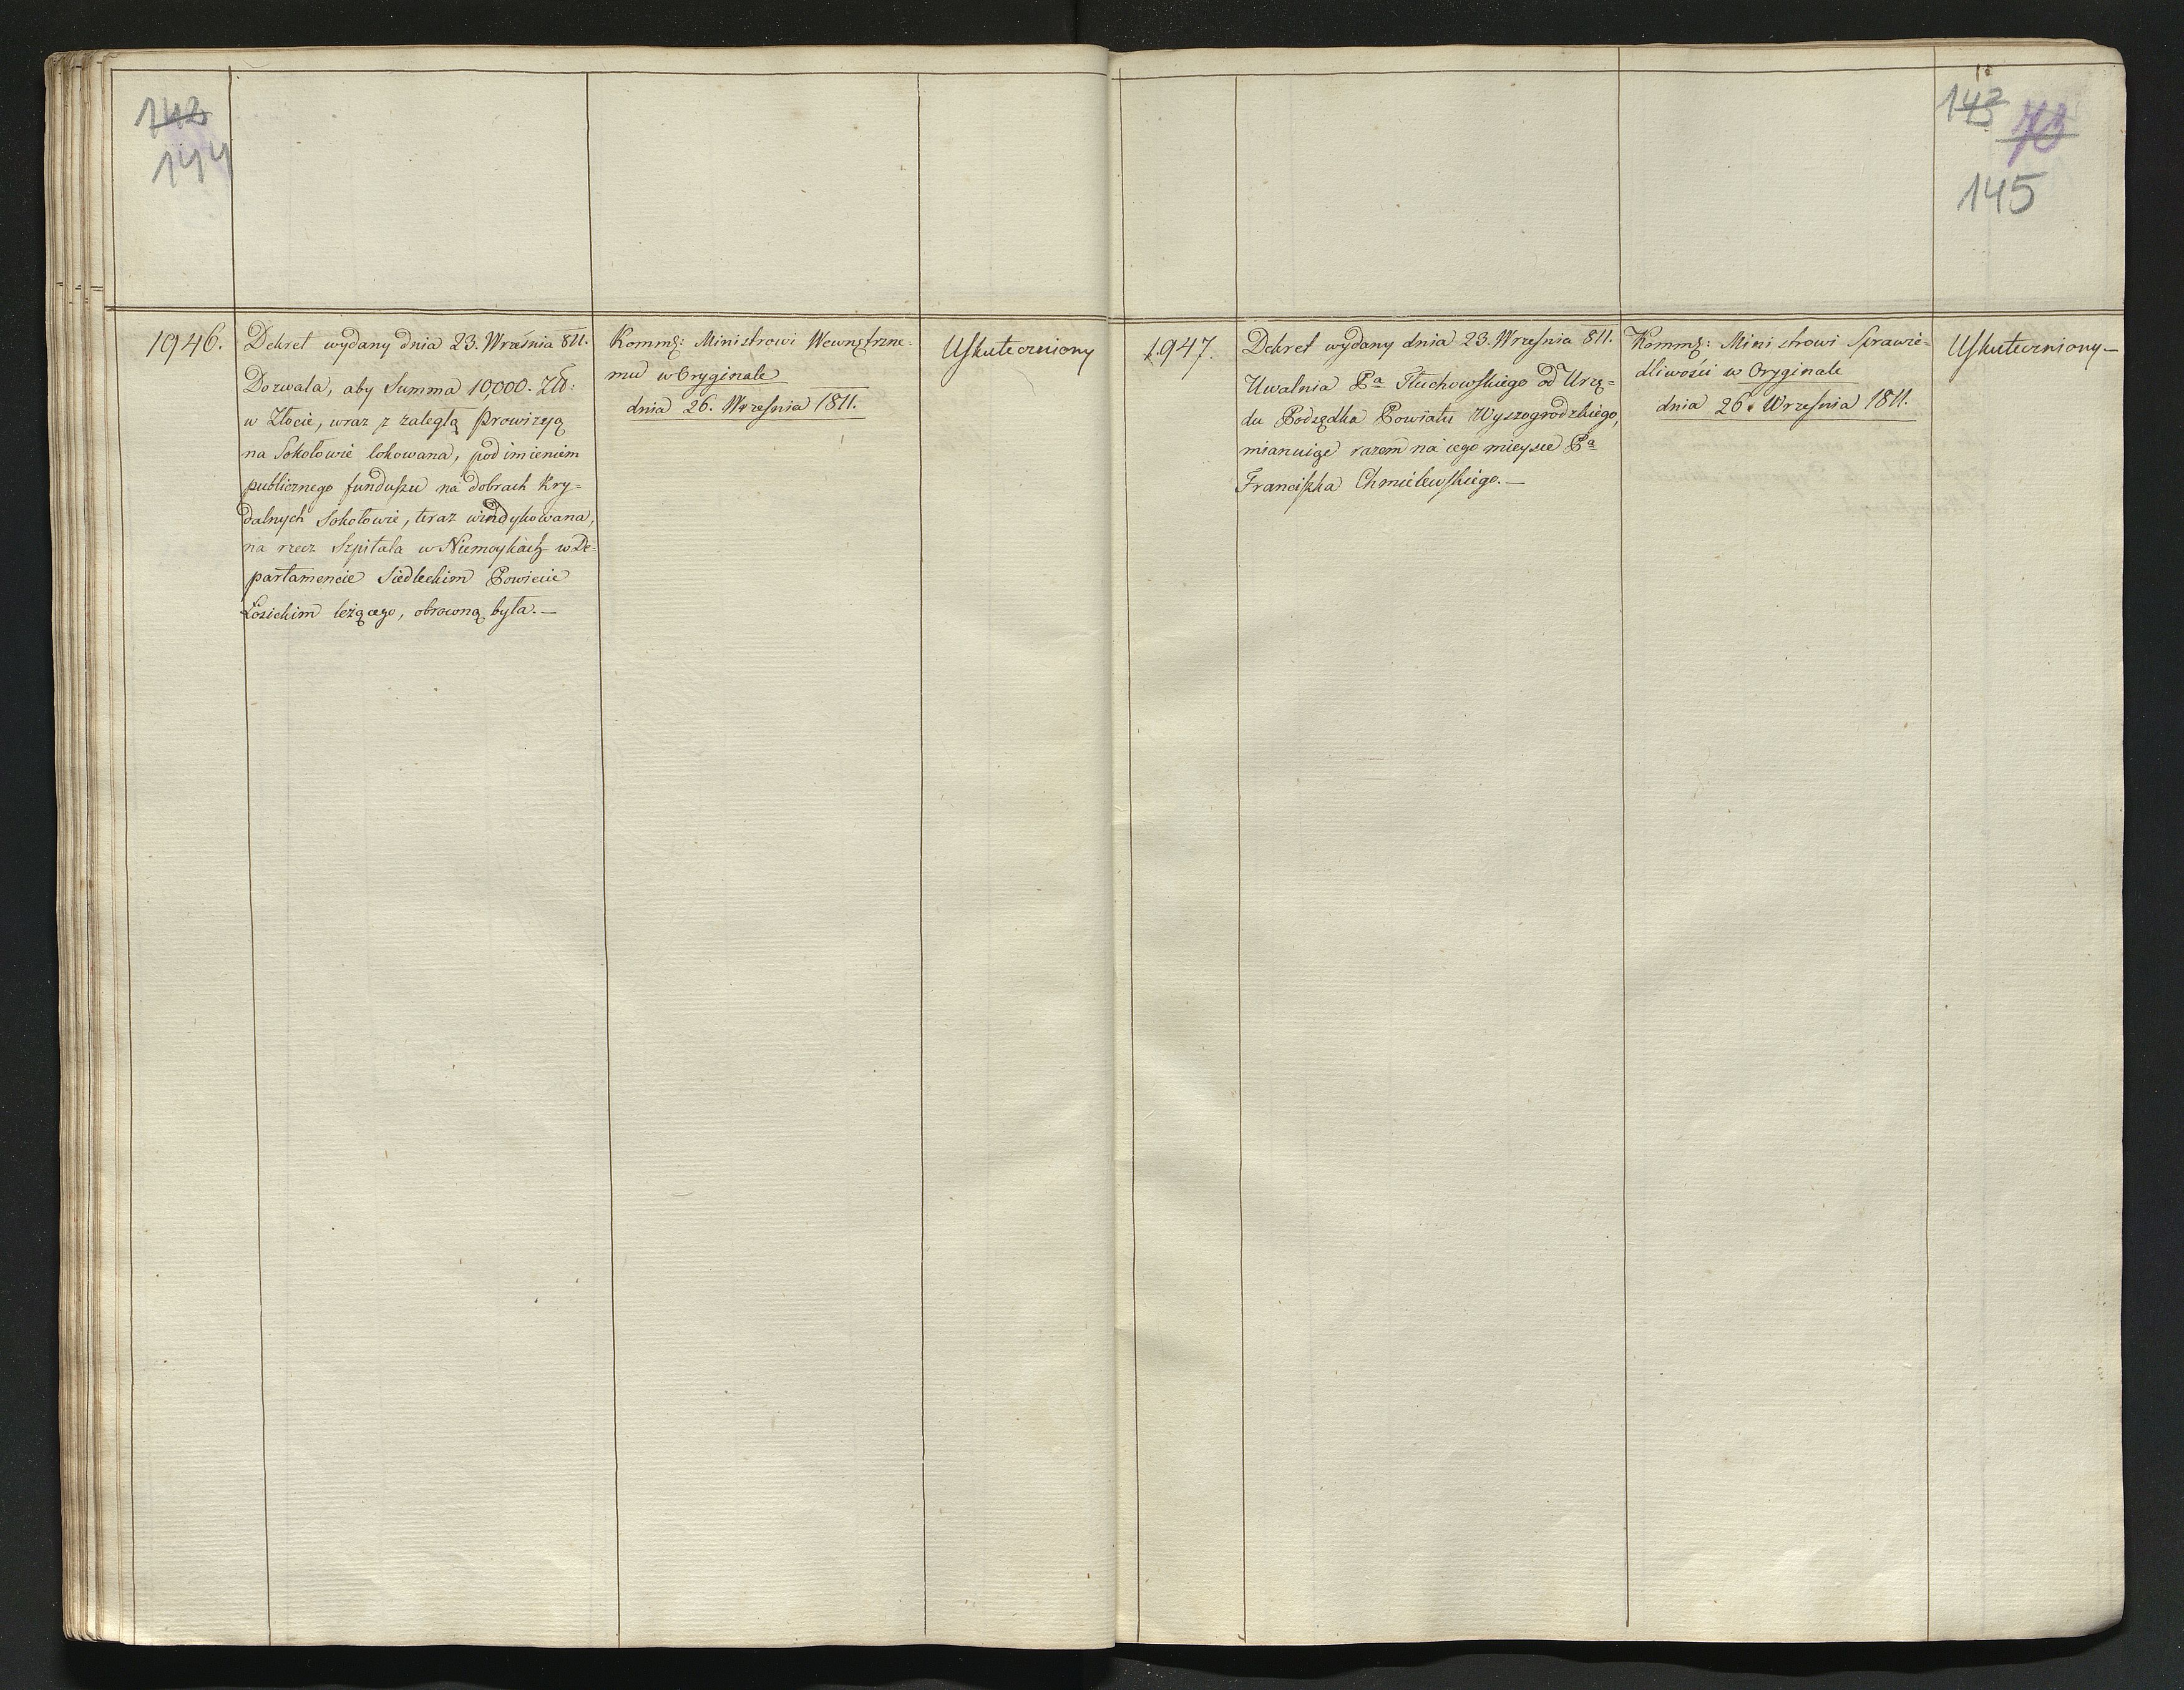 142
144
1946.
Dekret wydany dnia 23. Września 811.
Dozwala, aby Summa 10,000. Złt:
w Złocie, wraz z zaległą Prowizyą
na Sokołowie lokowana, pod imieniem
publicznego funduszu na dobrach Kry=
dalnych Sokołowie, teraz windykowana,
na rzecz Szpitala w Niemoykach w De=
partamencie Siedleckim Powiecie
Łosickim leżącego, obroconą była.—
Kommę: Ministrowi Wewnętrzne=
mu w Oryginale
dnia 26. Września 1811.
Uskuteczniony
143
73
145
1947.
Dekret wydany dnia 23. Września 811.
Uwalnia Pa Tłuchowskiego od Urzę=
du Podsędka Powiatu Wyszogrodzkiego,
mianuiąc razem na iego mieysce Pa
Franciszka Chmielewskiego.—
Kommę: Ministrowi Sprawie=
dliwości w Oryginale
dnia 26. Września 1811.
Uskuteczniony—